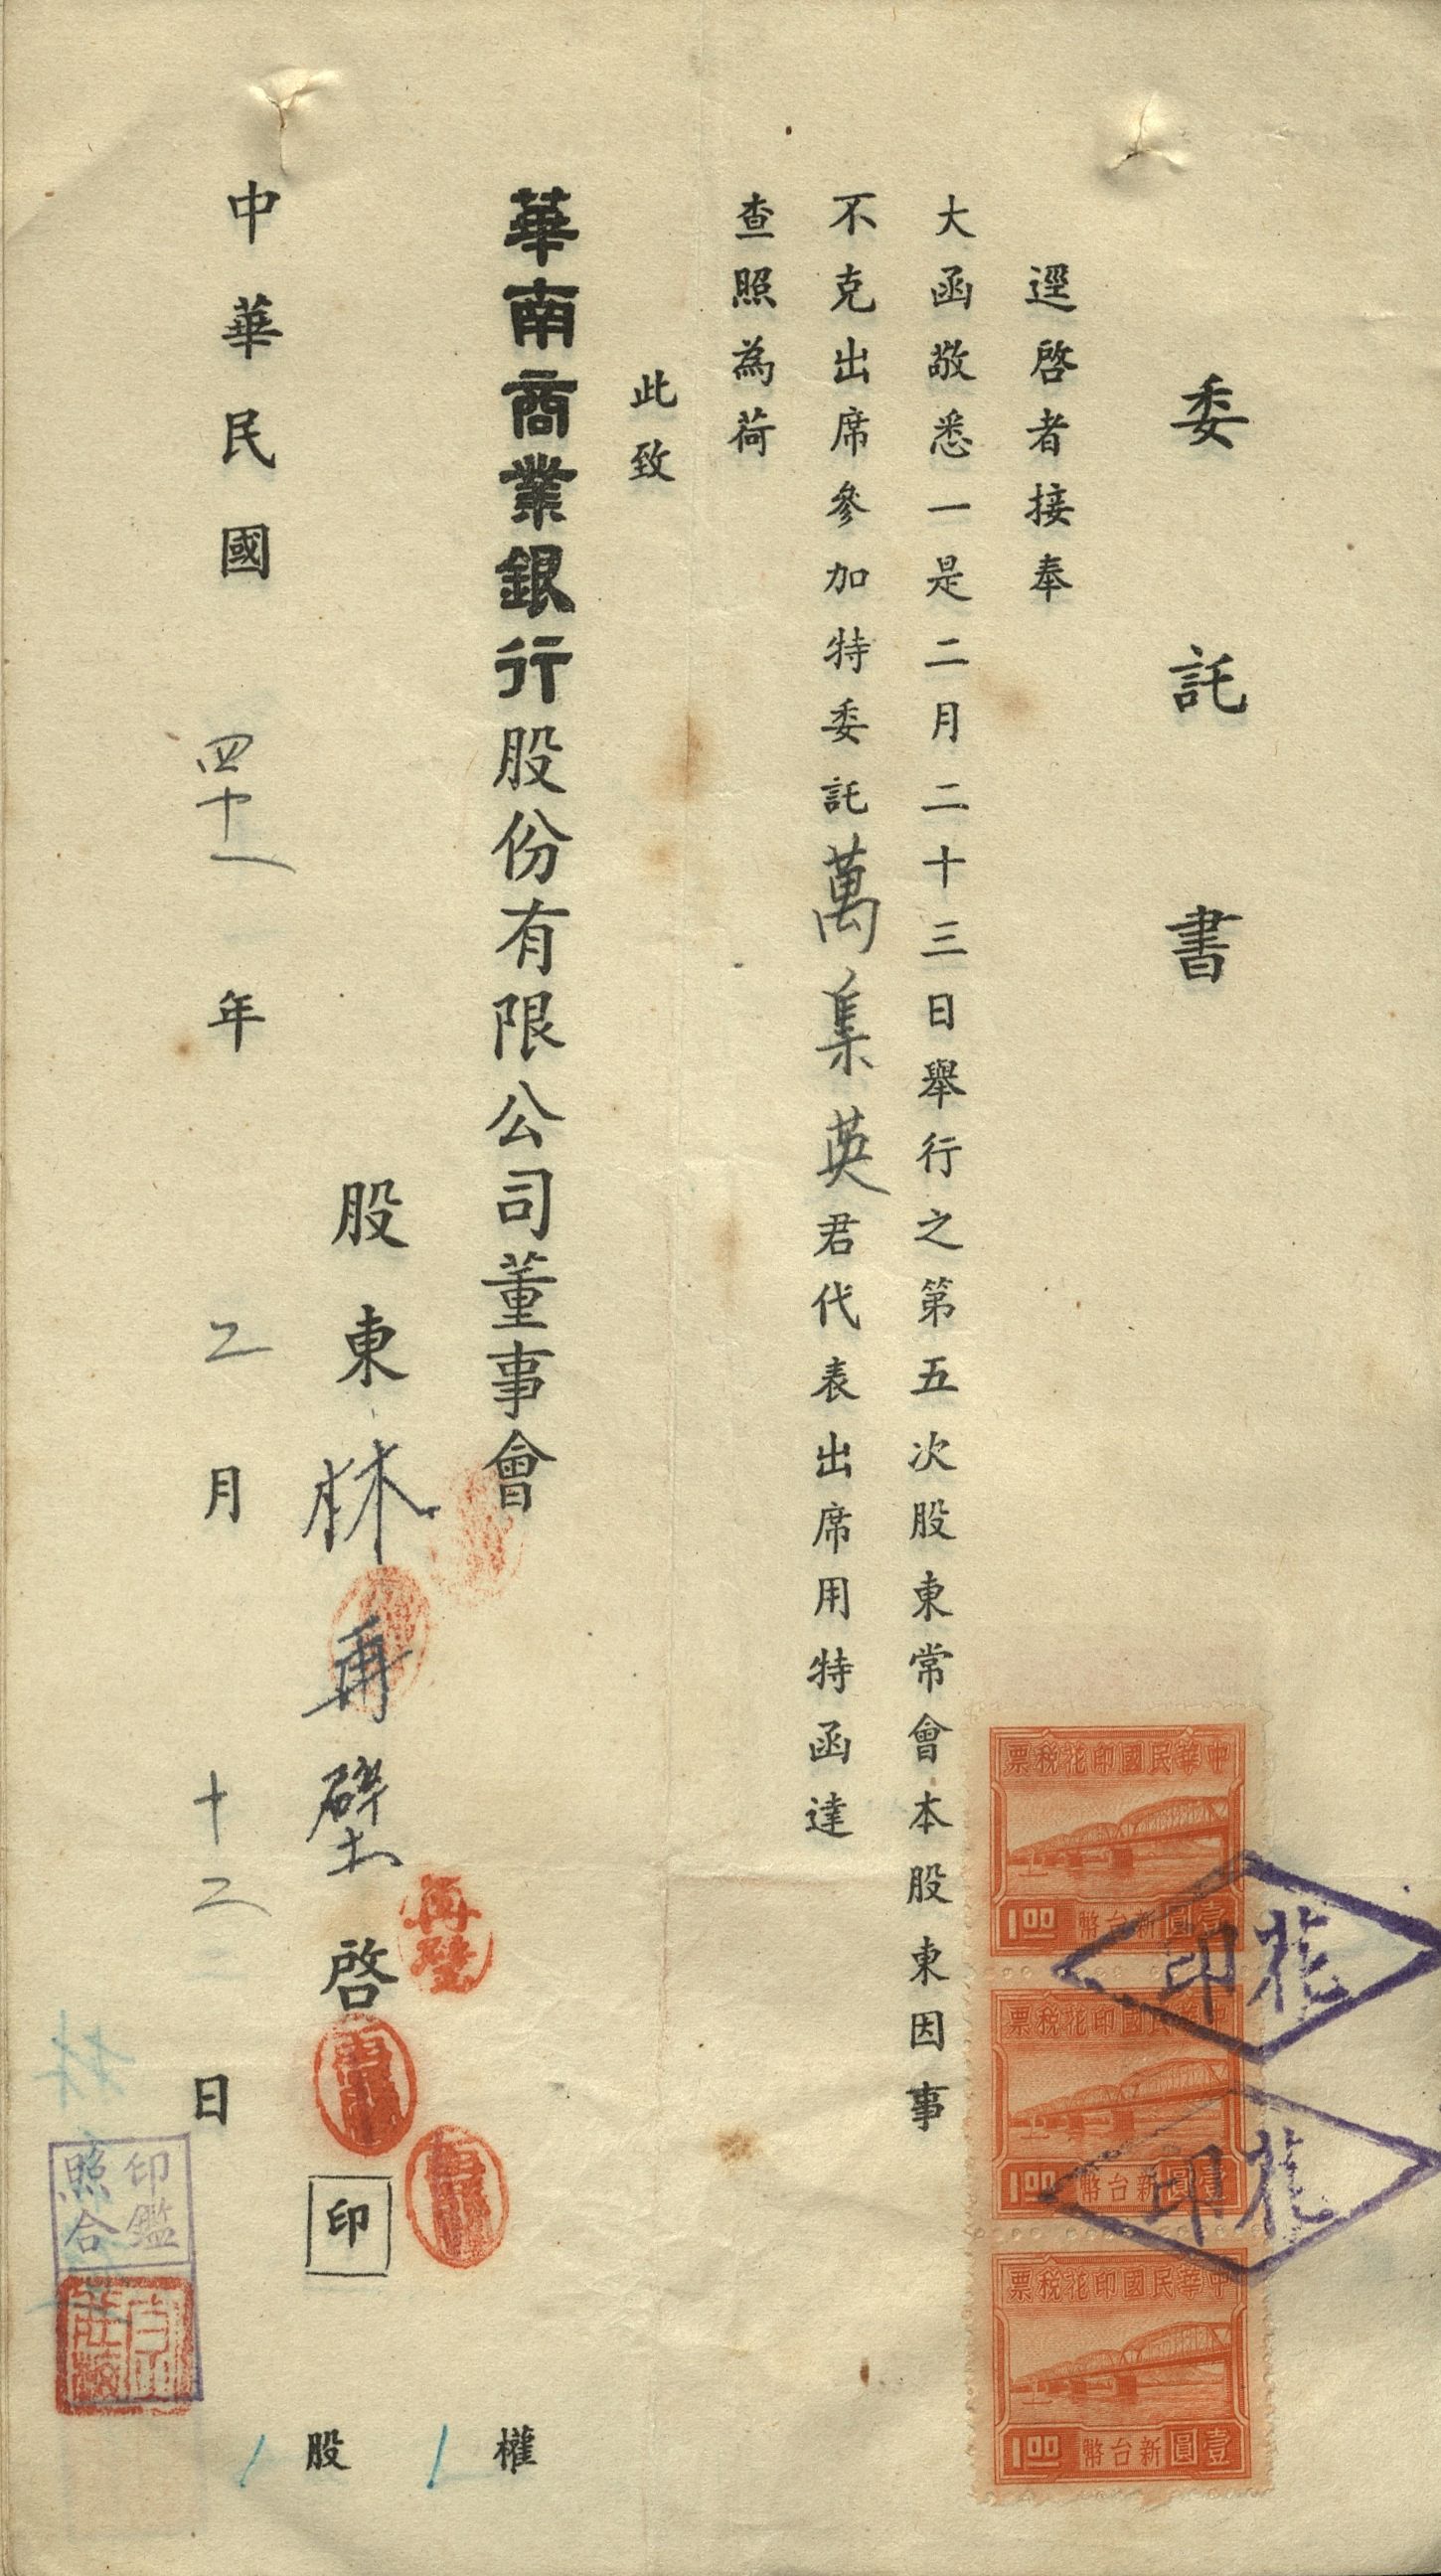 委託書
逕啓者接奉
大函敬悉一是二月二十三日舉行之第五次股東常會本股東因事
不克出席參加特委託萬集英君代表出席用特函達
查照為荷
此致
華南商業銀行股份有限公司董事會
股東林再壁啓印
中華民國四十一年二月十二日
權1
股1
再壁
印鑑
照合
票稅花印國民華中
1.00 幣台新圓壹
花印
票稅花印國民華中
1.00 幣台新圓壹
花印
票稅花印國民華中
1.00 幣台新圓壹